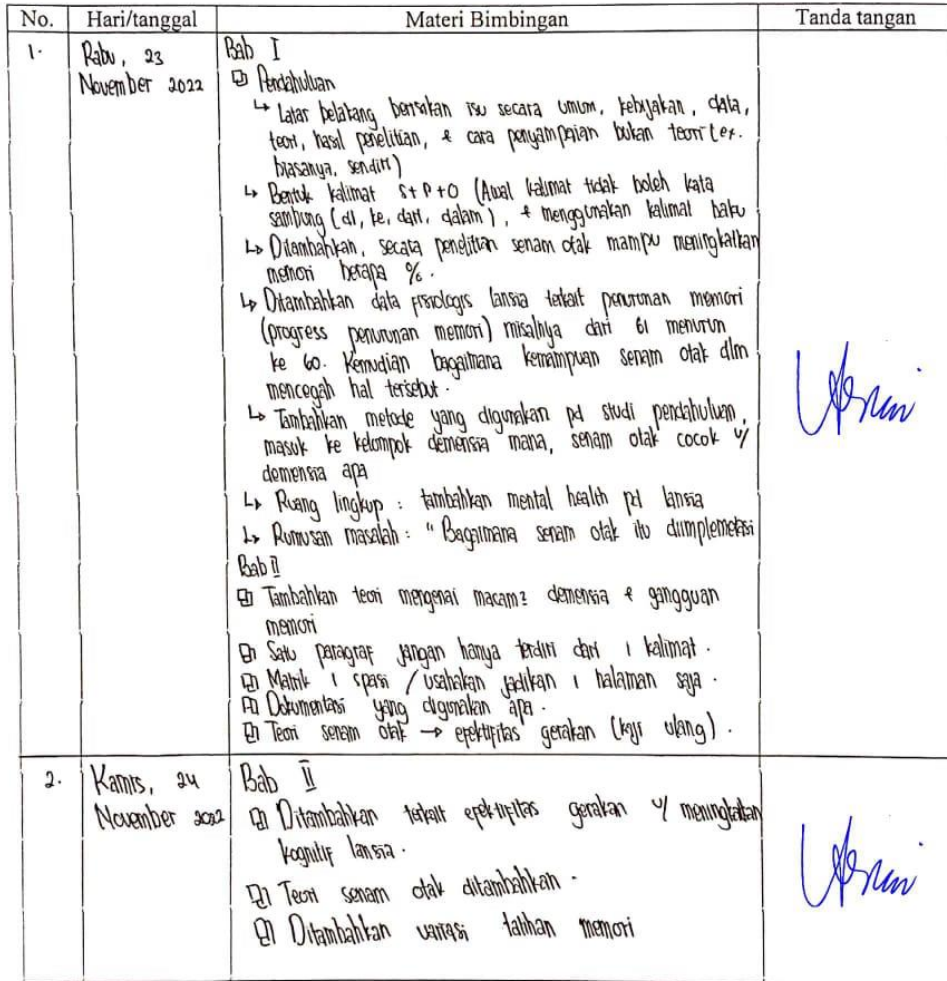 No. Hari/tanggal Materi Bimbingan Tanda tangan
1. Rabu, 23 November 2022
Bab I
Pendahuluan
↳ Latar belakang berisikan isu secara umum, kebijakan, data,
teori, hasil penelitian, & cara penyampaian bukan teori (ex.
biasanya, sendiri)
↳ Bentuk kalimat S+P+O (Awal kalimat tidak boleh kata
sambung (di, ke, dari, dalam), & menggunakan kalimat baku
↳ Ditambahkan, secara penelitian senam otak mampu meningkatkan
memori berapa %.
↳ Ditambahkan data fisiologis lansia terkait penurunan memori
(progress penurunan memori) misalnya dari 61 menurun
ke 60. Kemudian bagaimana kemampuan senam otak dlm
mencegah hal tersebut.
↳ Tambahkan metode yang digunakan pd studi pendahuluan,
masuk ke kelompok demensia mana, senam otak cocok u/
demensia apa
↳ Ruang lingkup : tambahkan mental health pd lansia
↳ Rumusan masalah : "Bagaimana senam otak itu diimplemetasi
Bab II
Tambahkan teori mengenai macam2 demensia & gangguan
memori
Satu paragraf jangan hanya terdiri dari 1 kalimat.
Matrik 1 spasi / usahakan jadikan 1 halaman saja.
Dokumentasi yang digunakan apa.
Teori senam otak → efektifitas gerakan (kaji ulang).
2. Kamis, 24 November 2022
Bab II
Ditambahkan terkait efektifitas gerakan u/ meningkatkan
kognitif lansia.
Teori senam otak ditambahkan.
Ditambahkan variasi latihan memori